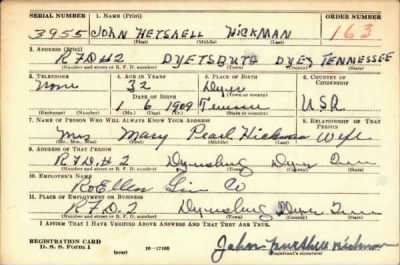 SERIAL NUMBER 1. NAME (Print) ORDER NUMBER
3955 JOHN HICKMAN 163
(First) (Middle) (Last)
3. ADDRESS (Print)
R.F.D #2 DYER TENNESSEE
(Number and street or R. F. D. number) (Town) (County) (State)
3. TELEPHONE 4. AGE IN YEARS 5. PLACE OF BIRTH 6. COUNTRY OF CITIZENSHIP
None 32 Dyer
DATE OF BIRTH
1 6 1909 U.S.A
(Mo.) (Day) (Yr.) (State or country)
7. NAME OF PERSON WHO WILL ALWAYS KNOW YOUR ADDRESS 8. RELATIONSHIP OF THAT PERSON
Mrs Mary Pearl Hickman Wife
(Mr., Mrs., Miss) (First) (Middle) (Last)
9. ADDRESS OF THAT PERSON
R.F.D. # 2 Dyersburg Dyer Tenn
(Number and street or R. F. D. number) (Town) (County) (State)
10. EMPLOYER'S NAME
RoEllen Gin Co
11. PLACE OF EMPLOYMENT OR BUSINESS
R.F.D. 2 Dyersburg Dyer Tenn
(Number and street or R. F. D. number) (Town) (County) (State)
I AFFIRM THAT I HAVE VERIFIED ABOVE ANSWERS AND THAT THEY ARE TRUE.
REGISTRATION CARD
D. S. S. Form 1 (over) 16—17105
John Hickman
(Registrant's signature)